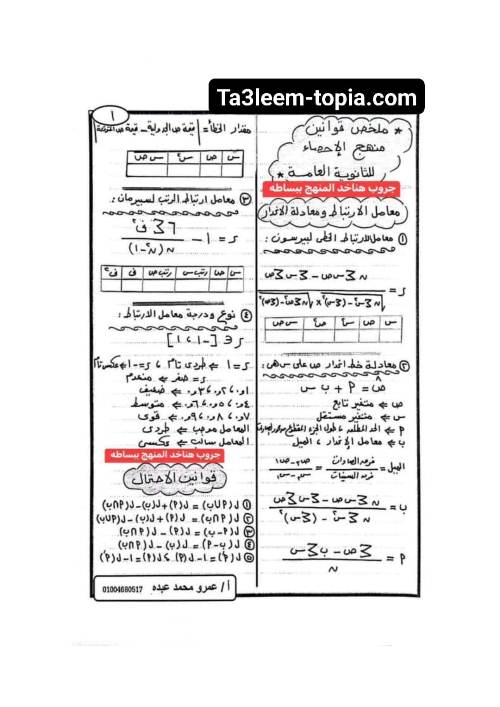 Ta3leem-topia.com
١
* ملخص قوانين
منهج الإحصاء
للثانوية العامة *
جروب هناخد المنهج ببساطه
معامل الارتباط ومعادلة الانحدار
① معامل الارتباط الخطى لبيرسون :
س | ص | س٢ | ص٢ | س ص
② معادلة خط انحدار ص على س هى :
ص^ = P + ب س
ص ⇐ متغير تابع
س ⇐ متغير مستقل
ب ⇐ معامل الانحدار ، الميل
الميل = فرق الصادات / فرق السينات = (ص٢ - ص١) / (س٢ - س١)
ب = (ن Σس ص - Σس Σص) / (ن Σس٢ - (Σس)٢)
P = (Σص - ب Σس) / ن
مقدار الخطأ = | قيمة ص الجدولية - قيمة ص المتوقعة |
س | ص | س٢ | س ص
③ معامل ارتباط الرتب لسبيرمان :
ر = ١ - (٦ Σ ف٢) / (ن (ن٢ - ١))
س | ص | رتب س | رتب ص | ف | ف٢
④ نوع ودرجة معامل الارتباط :
ر ∈ [-١ ، ١]
ر = ١ ⇐ طردى تام ، ر = -١ ⇐ عكسى تام
ر = صفر ⇐ منعدم
٠,١ ، ٠,٢ ، ٠,٣ ⇐ ضعيف
٠,٤ ، ٠,٥ ، ٠,٦ ⇐ متوسط
٠,٧ ، ٠,٨ ، ٠,٩ ⇐ قوى
المعامل موجب ⇐ طردى
المعامل سالب ⇐ عكسى
جروب هناخد المنهج ببساطه
قوانين الاحتمال
① ل(P∪ب) = ل(P) + ل(ب) - ل(P∩ب)
② ل(P∩ب) = ل(P) + ل(ب) - ل(P∪ب)
③ ل(P-ب) = ل(P) - ل(P∩ب)
④ ل(ب-P) = ل(ب) - ل(P∩ب)
⑤ ل(P') = ١ - ل(P) ، ل(P) = ١ - ل(P')
أ / عمرو محمد عبده 01004680517